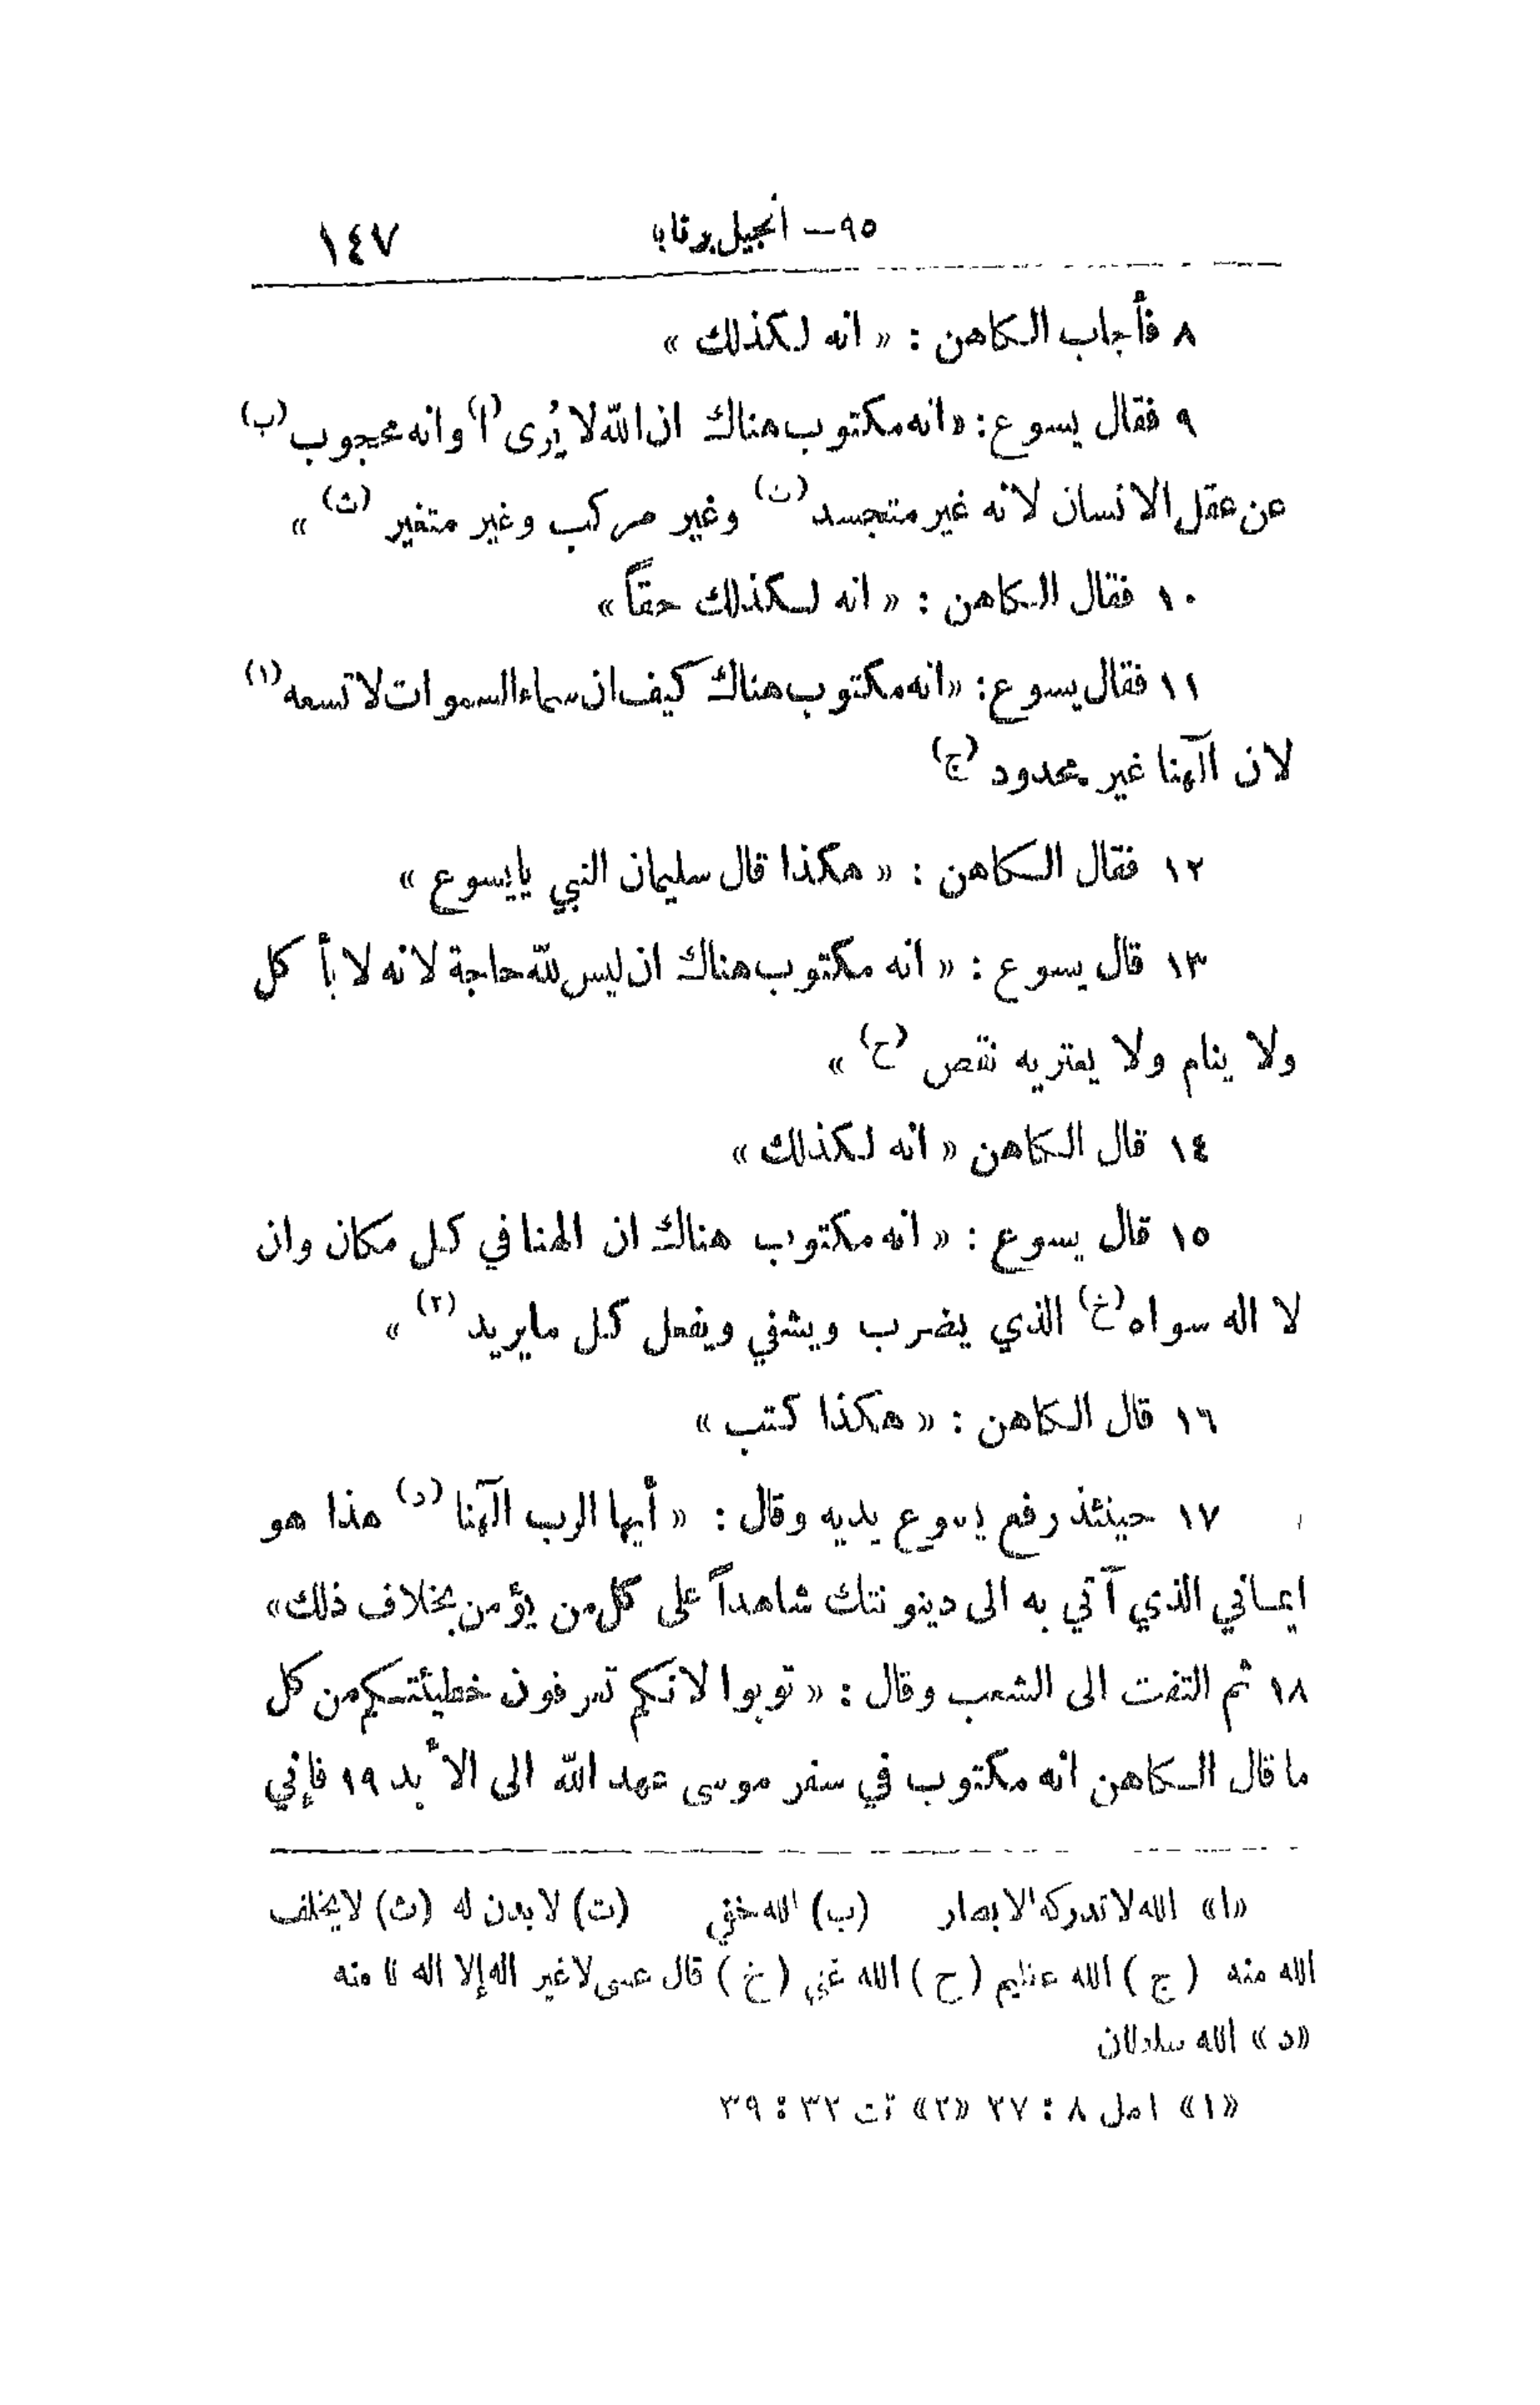 ٩٥ — أنجيل برنابا ١٤٧
٨ فأجاب الكاهن : « انه لكذلك »
٩ فقال يسوع : « انه مكتوب هناك ان الله لا يُرى (ا) وانه محجوب (ب)
عن عقل الانسان لانه غير متجسد (ت) وغير مركب وغير متغير (ث) »
١٠ فقال الكاهن : « انه لكذلك حقاً »
١١ فقال يسوع : « انه مكتوب هناك كيف ان سماء السموات لا تسعه (١)
لان آلهنا غير محدود (ج)
١٢ فقال الكاهن : « هكذا قال سليمان النبي يايسوع »
١٣ قال يسوع : « انه مكتوب هناك ان ليس لله حاجة لانه لا يأكل
ولا ينام ولا يعتريه نقص (ح) »
١٤ قال الكاهن « انه لكذلك »
١٥ قال يسوع : « انه مكتوب هناك ان الهنا في كل مكان وان
لا اله سواه (خ) الذي يضرب ويشفي ويفعل كل مايريد (٢) »
١٦ قال الكاهن : « هكذا كتب »
١٧ حينئذ رفع يسوع يديه وقال : « أيها الرب آلهنا (د) هذا هو
ايماني الذي آتي به الى دينونتك شاهداً على كل من يؤمن بخلاف ذلك »
١٨ ثم التفت الى الشعب وقال : « توبوا لانكم تعرفون خطيئتكم من كل
ما قال الكاهن انه مكتوب في سفر موسى عهد الله الى الأبد ١٩ فإني
«ا» الله لا تدركه الابصار (ب) الله خفي (ت) لا بدن له (ث) لا يختلف
الله منه (ج) الله عظيم (ح) الله غني (خ) قال عسى لا غير اله إلا اله نا منه
«د» الله سلطان
«١» امل ٨ : ٢٧ «٢» تث ٣٢ : ٣٩